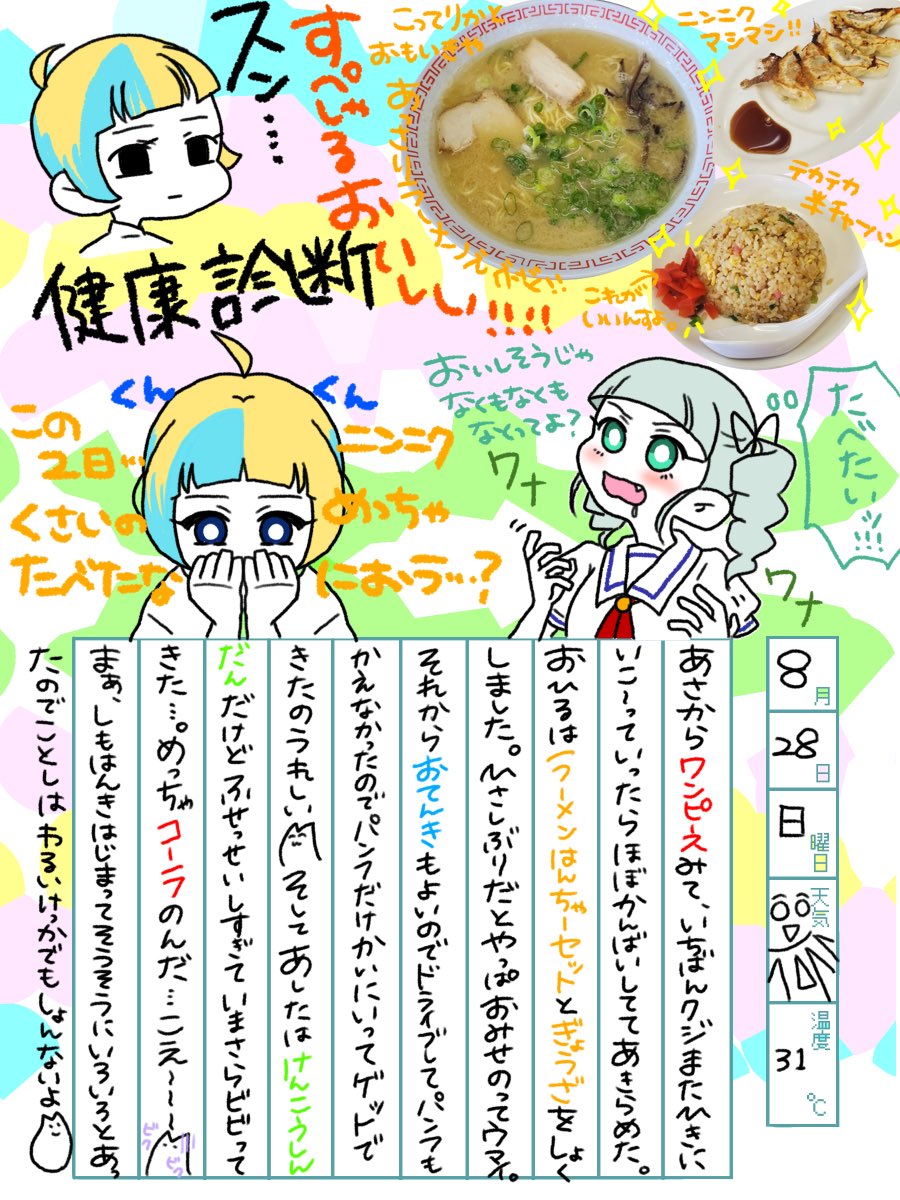 スン……
健康診断
すぺしゃるおいしい!!!!
こってりかと
おもいきや
ニンニク
マシマシ!!
テカテカ
半チャーハン
これが
いいんすよ。
くん
くん
この
2日…
くさいの
たべたな
ニンニク
めっちゃ
におう…?
おいしそうじゃ
なくもなくも
なくってよ?
ワナ
ワナ
たべたい!!!
8月
28日
日曜日
天気
温度
31℃
あさからワンピースみて、いちばんクジまたひきに
いこ〜っていったらほぼかんばいしててあきらめた。
おひるはラーメンはんちゃーセットとぎょうざをしょく
しました。ひさしぶりだとやっぱおみせのってウマイ。
それからおてんきもよいのでドライブしてパンフも
かえなかったのでパンフだけかいにいってゲットで
きたのうれしい そしてあしたはけんこうしん
だんだけどふせっせいしすぎていまさらビビって
きた…。めっちゃコーラのんだ…こえ〜〜〜
ビクビク
まぁ、しもはんきはじまってそうそうにいろいろとあっ
たのでことしはわるいけっかでもしょんないよ